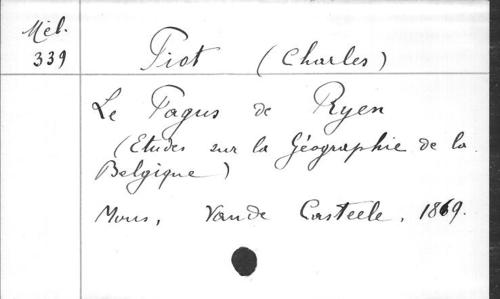 Mél.
339
Piot (Charles)
Le Pagus de Ryen
(Etudes sur la Géographie de la
Belgique)
Mons, Vande Casteele, 1869.